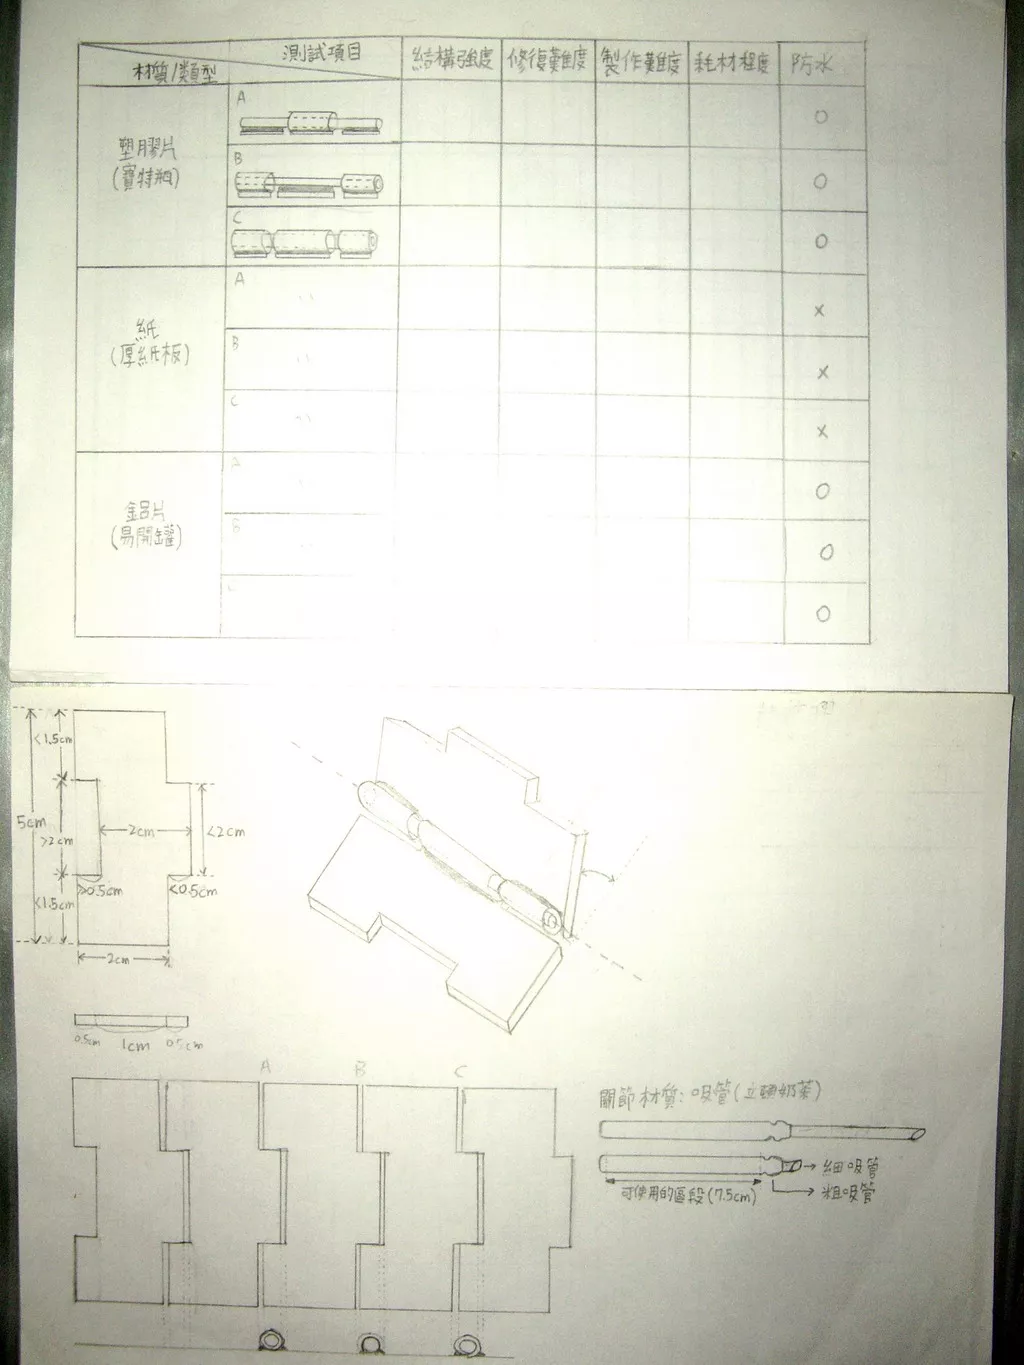 測試項目
材質/類型
結構強度 修復難度 製作難度 耗材程度 防水
塑膠片
(寶特瓶)
A
O
B
O
C
O
紙
(厚紙板)
A 〃 X
B 〃 X
C 〃 X
鋁片
(易開罐)
A 〃 O
B 〃 O
C O
<1.5cm
5cm
>2cm
2cm
<2cm
≥0.5cm
<0.5cm
<1.5cm
2cm
0.5cm 1cm 0.5cm
A B C
關節材質:吸管(立頓奶茶)
細吸管
可使用的區段(7.5cm)
粗吸管